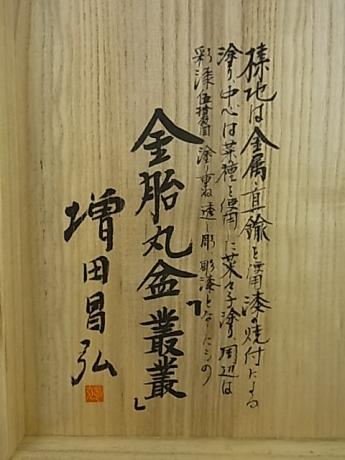 榡地は金属・真鍮を使用 漆の焼付による
塗り、中心は菜種を使用した菜々子塗、周辺は
彩漆 塗り重ね 透し彫 彫漆となしたもの
金胎丸盆「叢叢」
増田昌弘